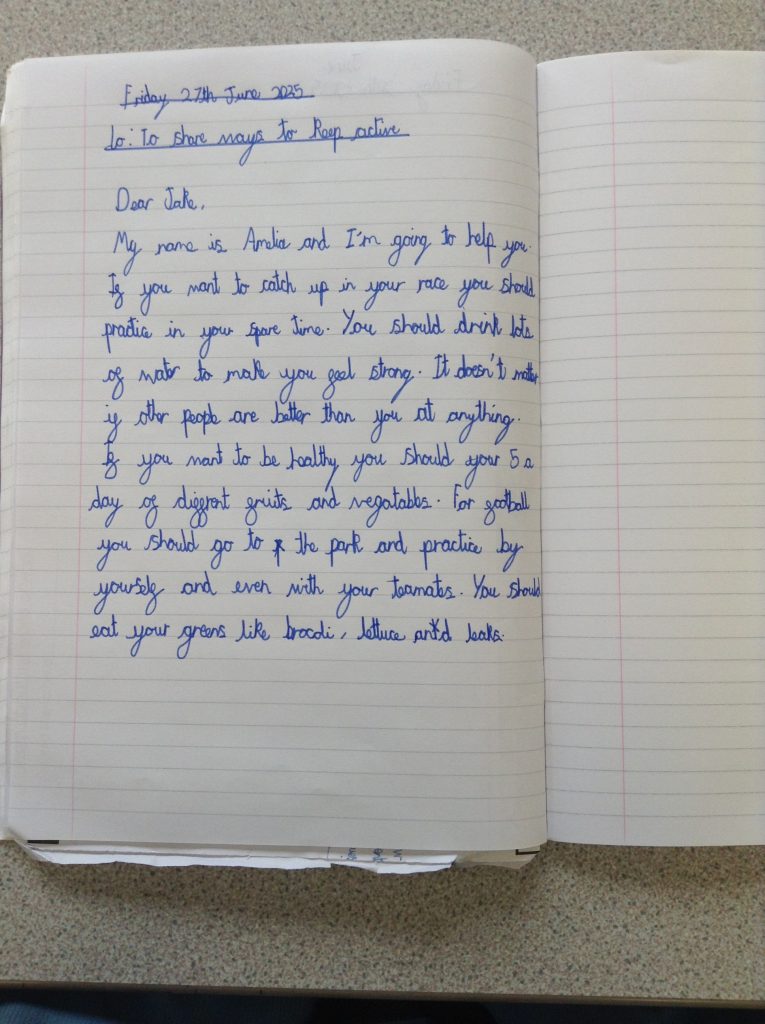 Friday 27th June 2025
Lo: To share ways to keep active
Dear Jake,
My name is Amelia and I'm going to help you.
If you want to catch up in your race you should
practice in your spare time. You should drink lots
of water to make you feel strong. It doesn't matter
if other people are better than you at anything.
If you want to be healthy you should your 5 a
day of diffrent fruits and vegatables. For football
you should go to the park and practice by
yourself and even with your teamates. You should
eat your greens like brocoli, lettuce and leaks.